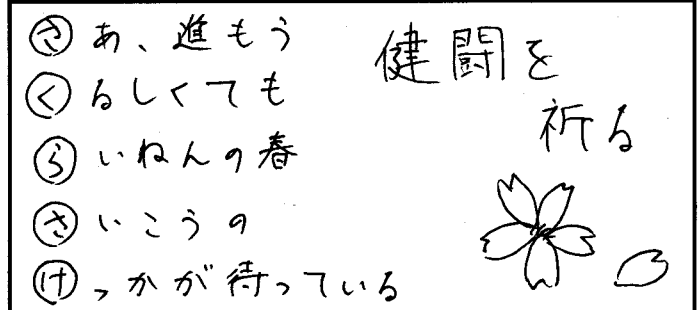 さあ、進もう
くるしくても
らいねんの春
さいこうの
けっかが待っている
健闘を
祈る